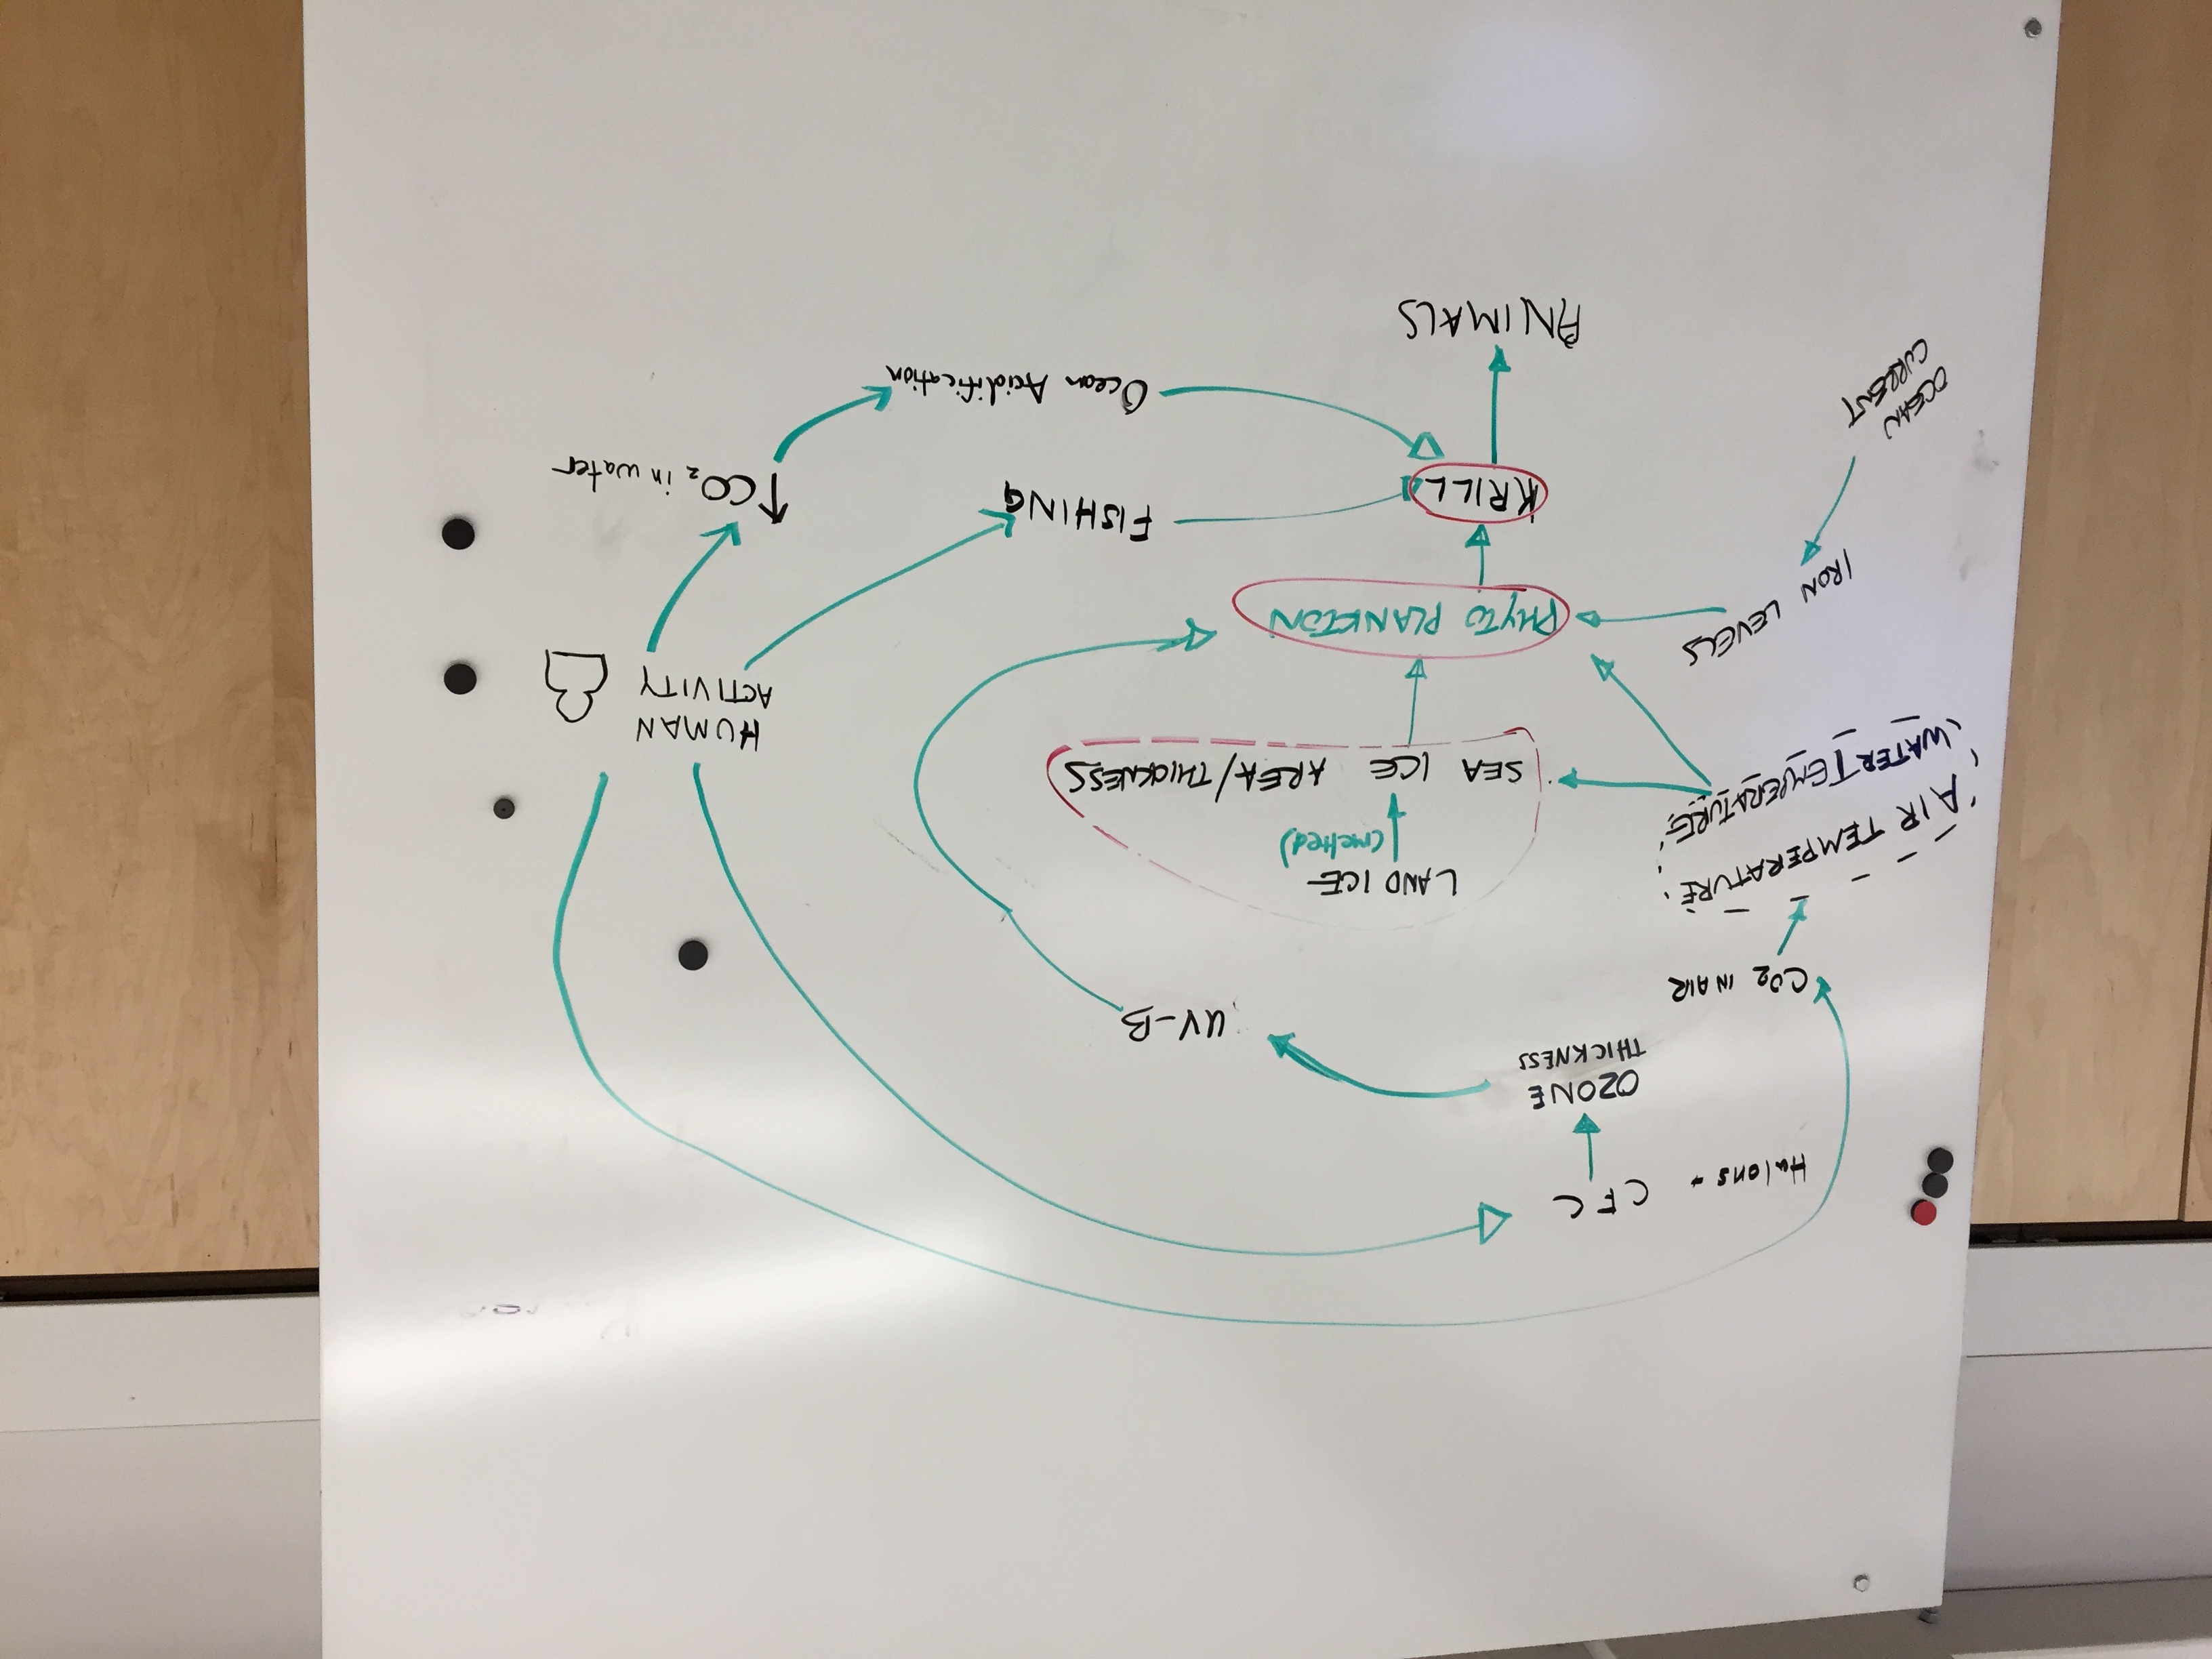 Halons + CFC
OZONE
THICKNESS
UV-B
CO2 IN AIR
AIR TEMPERATURE
WATER TEMPERATURE
LAND ICE
(melted)
SEA ICE AREA/THICKNESS
HUMAN
ACTIVITY
IRON LEVELS
PHYTO PLANKTON
FISHING
KRILL
↑CO2 in water
OCEAN
CURRENT
Ocean Acidification
ANIMALS